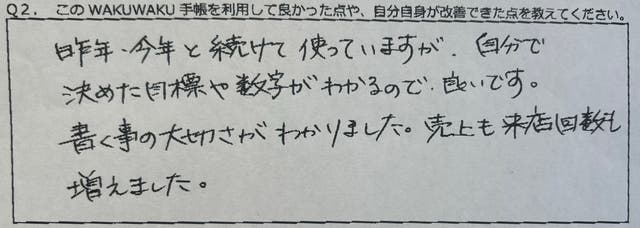 Q2. このWAKUWAKU手帳を利用して良かった点や、自分自身が改善できた点を教えてください。
昨年・今年と続けて使っていますが、自分で
決めた目標や数字がわかるので、良いです。
書く事の大切さがわかりました。売上も来店回数も
増えました。